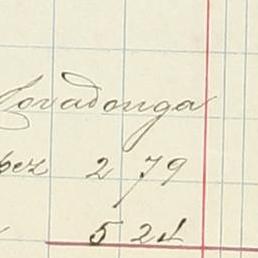 Covadonga
pez 2 79
5 21